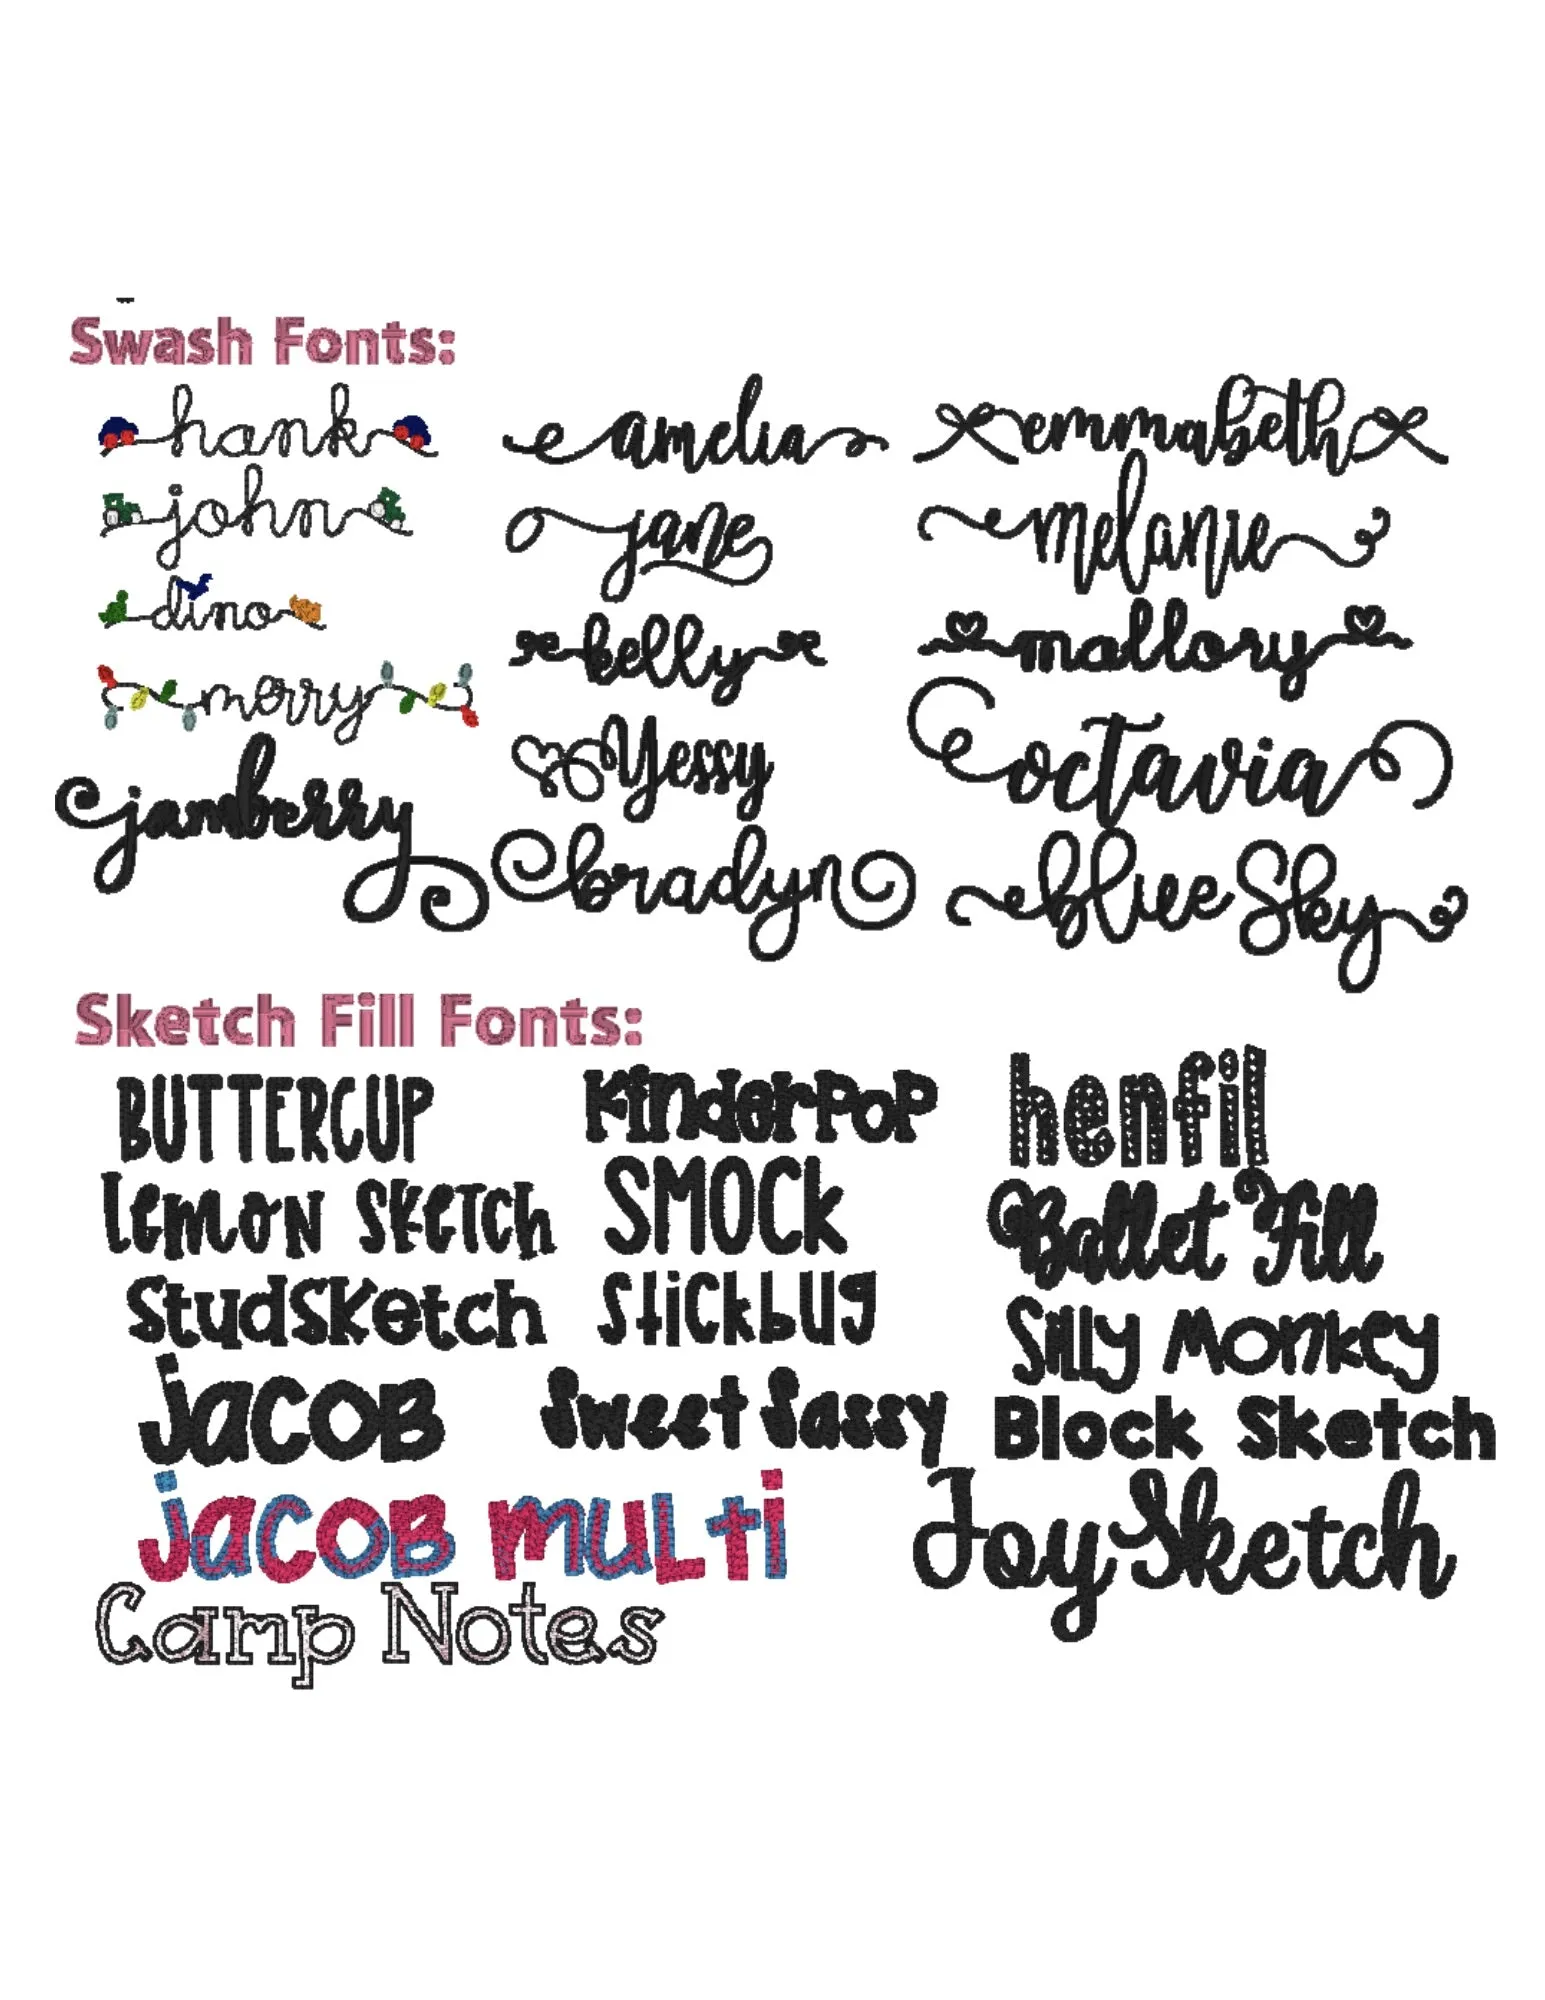 Swash Fonts:
hank
john
dino
merry
jamberry
amelia
jane
kelly
Yessy
bradyn
emmabeth
melanie
mallory
octavia
blueSky
Sketch Fill Fonts:
BUTTERCUP
Lemon Sketch
StudSketch
jacob
jacob multi
Camp Notes
KinderPoP
SMOCk
Stickbug
Sweet Sassy
henfil
Ballet Fill
Silly Monkey
Block Sketch
JoySketch